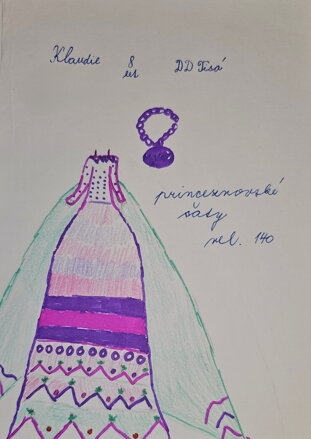 Klaudie 8 let DD Tisá
princeznovské
šaty
vel. 140